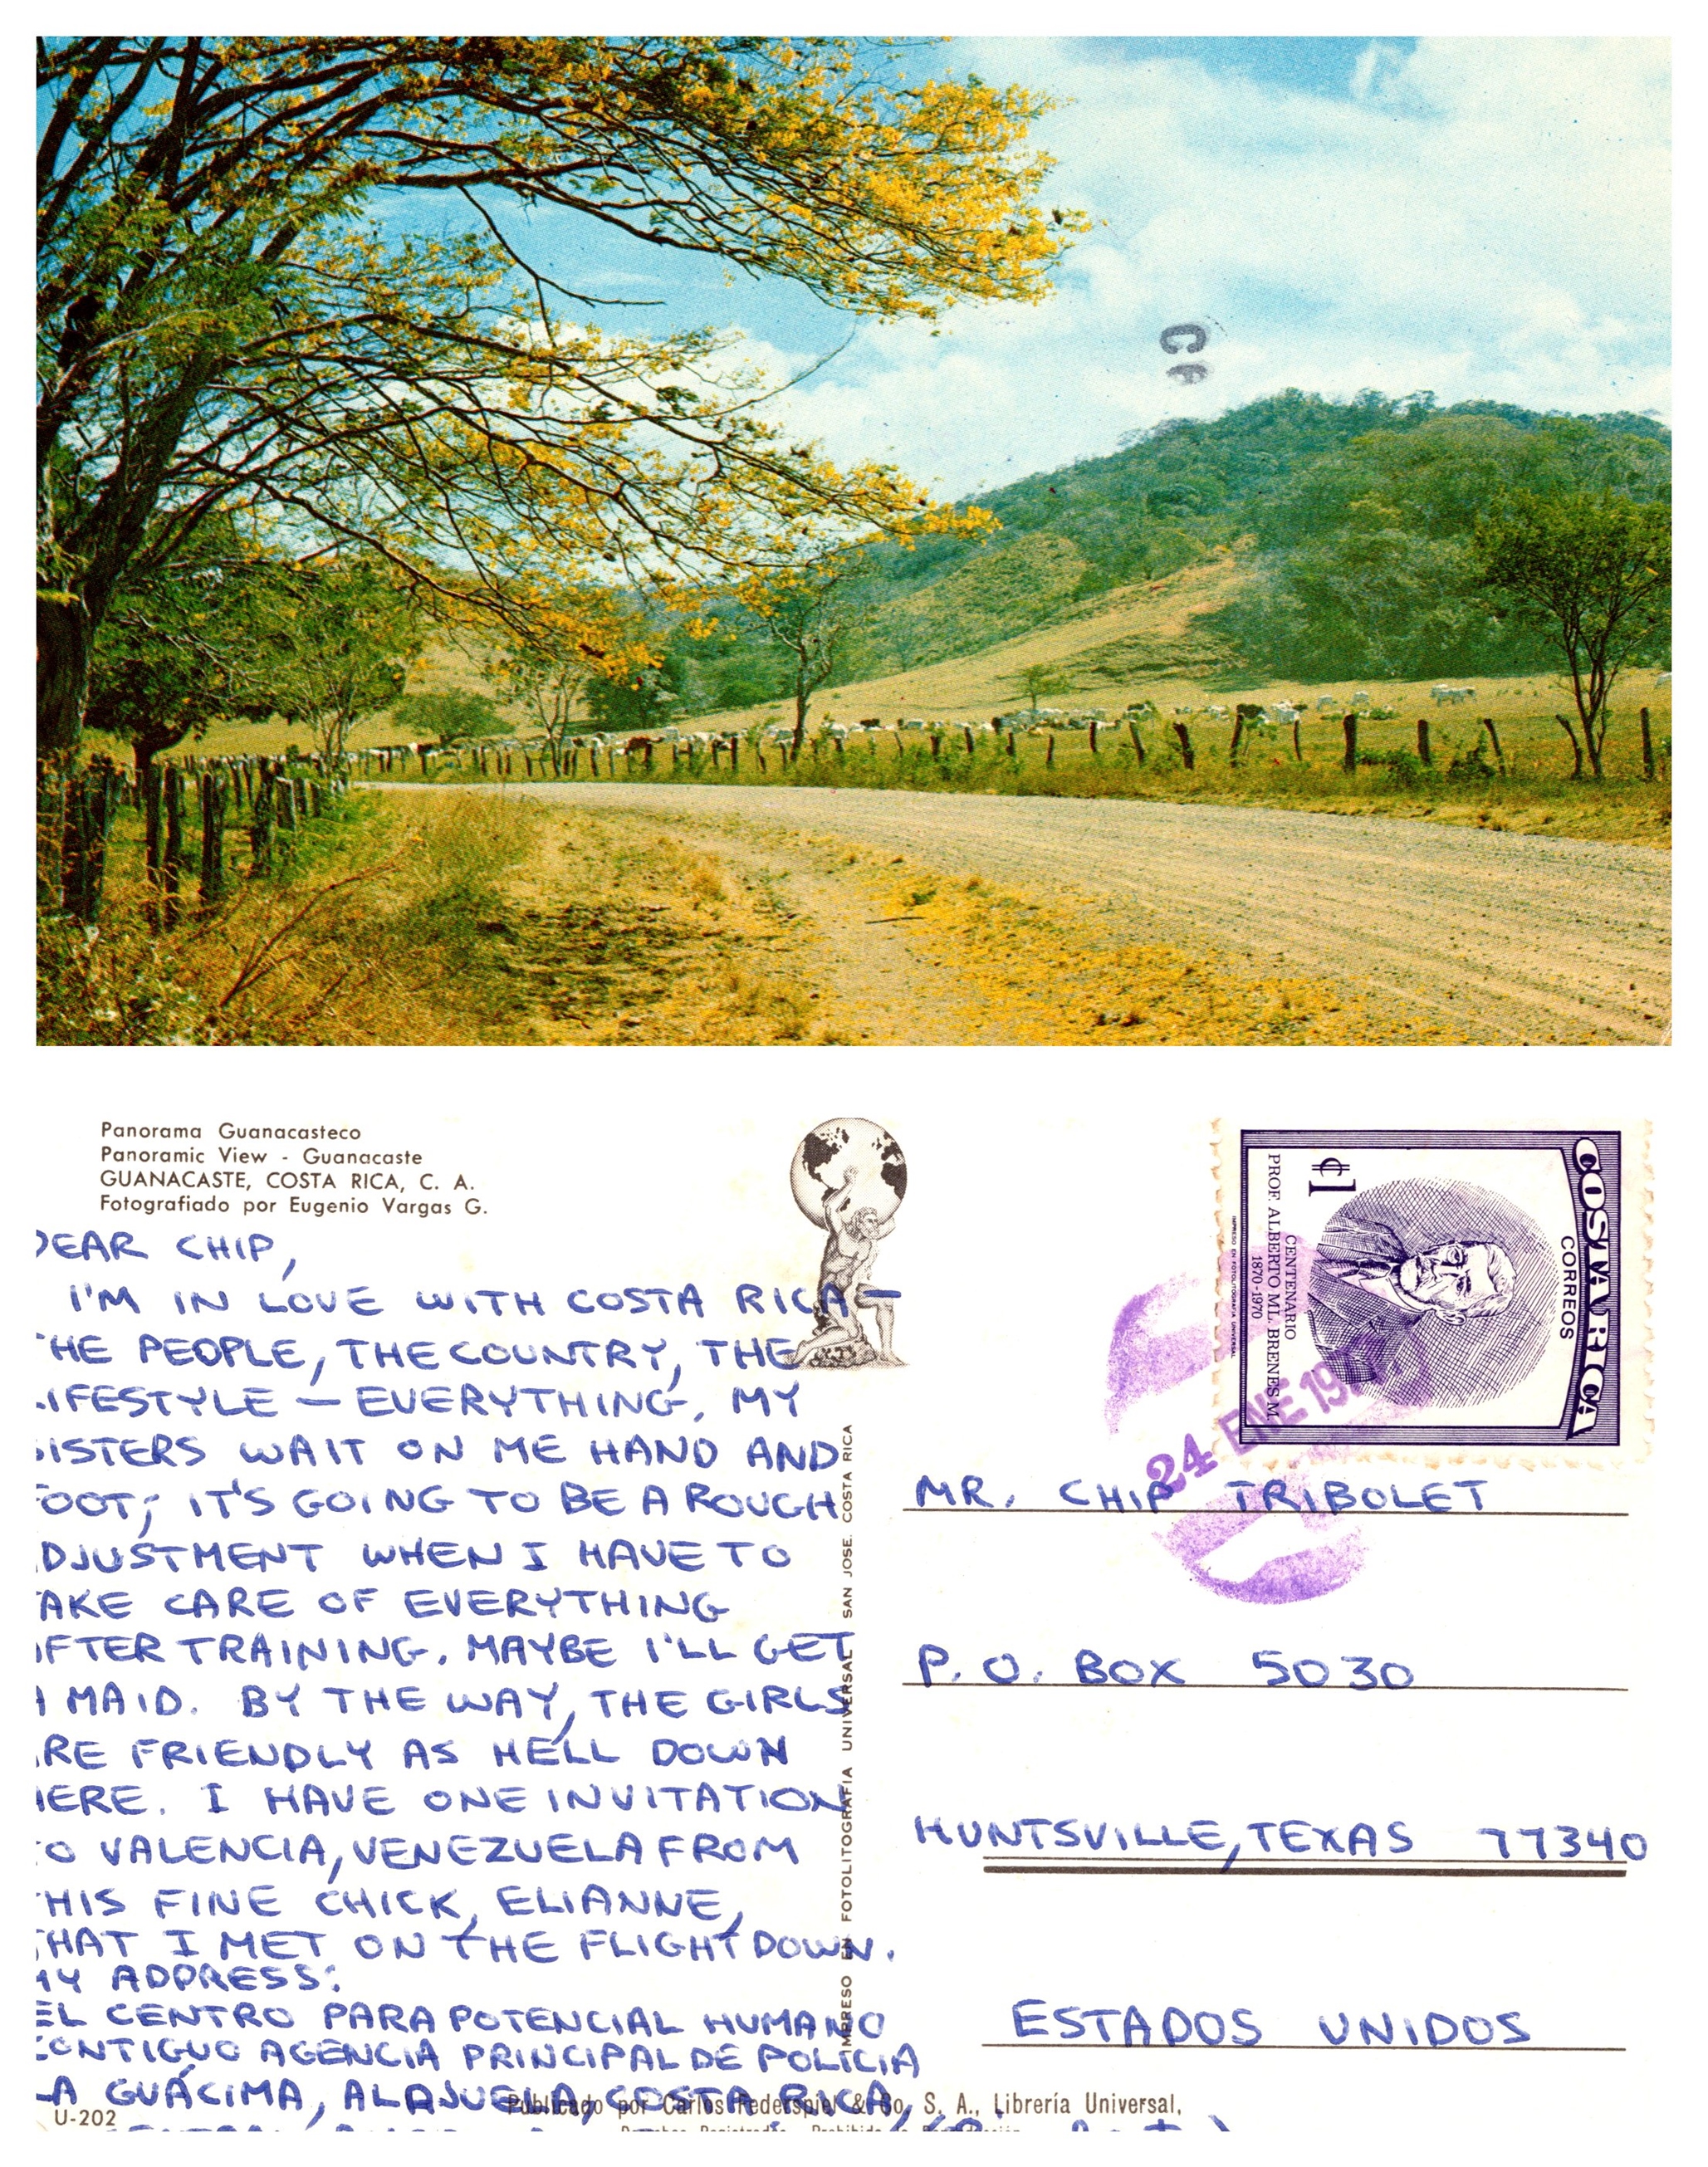 C
Panorama Guanacasteco
Panoramic View - Guanacaste
GUANACASTE, COSTA RICA, C. A.
Fotografiado por Eugenio Vargas G.
DEAR CHIP,
I'M IN LOVE WITH COSTA RICA—
THE PEOPLE, THE COUNTRY, THE
LIFESTYLE — EVERYTHING. MY
SISTERS WAIT ON ME HAND AND
FOOT; IT'S GOING TO BE A ROUGH
ADJUSTMENT WHEN I HAVE TO
TAKE CARE OF EVERYTHING
AFTER TRAINING. MAYBE I'LL GET
A MAID. BY THE WAY, THE GIRLS
ARE FRIENDLY AS HELL DOWN
HERE. I HAVE ONE INVITATION
TO VALENCIA, VENEZUELA FROM
THIS FINE CHICK, ELIANNE,
THAT I MET ON THE FLIGHT DOWN.
MY ADDRESS:
EL CENTRO PARA POTENCIAL HUMANO
CONTIGUO AGENCIA PRINCIPAL DE POLICIA
LA GUÁCIMA, ALAJUELA, COSTA RICA,
U-202
Publicado por Carlos Federspiel & Co, S. A., Librería Universal,
IMPRESO EN FOTOLITOGRAFIA UNIVERSAL SAN JOSE. COSTA RICA
COSTA RICA
CORREOS
₡1
CENTENARIO
PROF. ALBERTO ML. BRENES M.
1870-1970
IMPRESO EN FOTOLITOGRAFIA UNIVERSAL
24 ENE
MR. CHIP TRIBOLET
P. O. BOX 5030
HUNTSVILLE, TEXAS 77340
ESTADOS UNIDOS